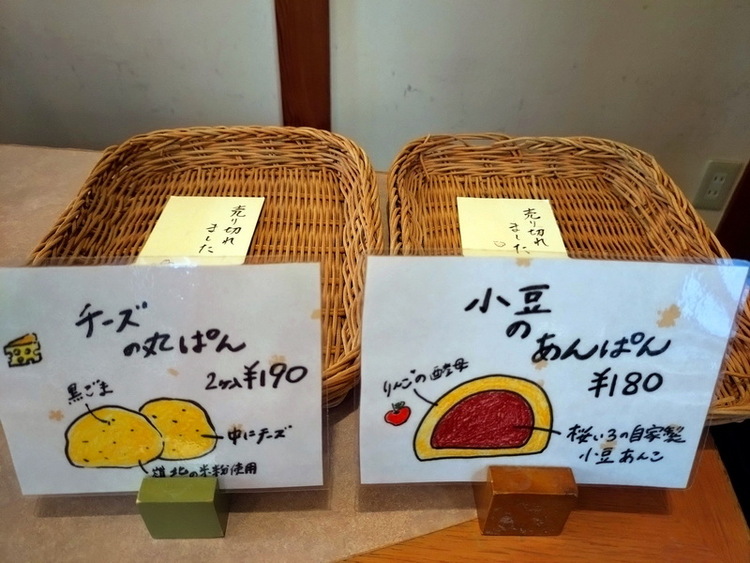 売り切れ
ました
チーズ
の丸ぱん
2ヶ入 ¥190
黒ごま
中にチーズ
道北の米粉使用
売り切れ
ました
小豆
の
あんぱん
¥180
りんごの酵母
桜いろの自家製
小豆あんこ